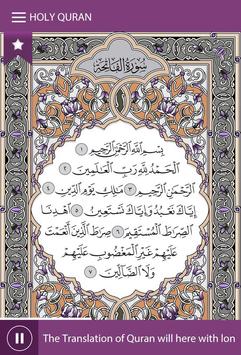 HOLY QURAN
سورة الفاتحة
بسم الله الرحمن الرحيم ١
الحمد لله رب العلمين ٢
الرحمن الرحيم ٣ ملك يوم الدين ٤
إياك نعبد وإياك نستعين ٥ اهدنا
الصرط المستقيم ٦ صرط الذين أنعمت
عليهم غير المغضوب عليهم
ولا الضالين ٧
The Translation of Quran will here with lon